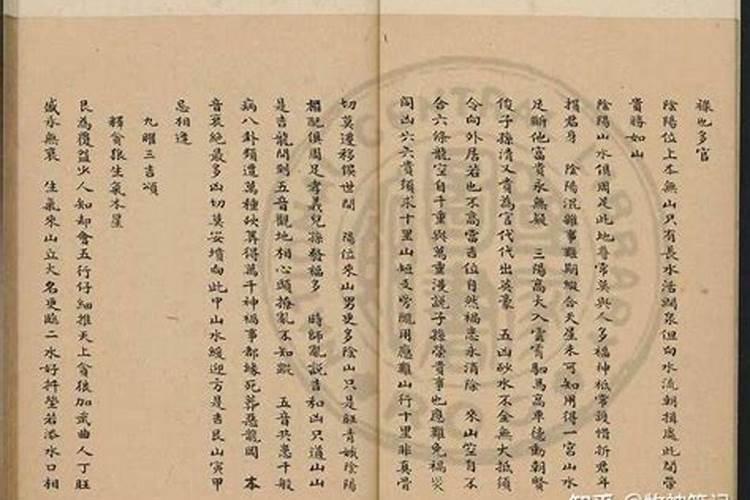 祿也多官
陰陽位上本無山只有長水活澗泉但向水流朝損處此間帶
貴勝如山
陰陽山水俱周足此地尋常莫與人多福神祇常護惜折君年
損君身 陰陽混雜事難期綴合天星未可知用得一宮山水
足斷他富貴永無疑 三陽高大入雲霄駟馬高車德動朝賢
俊子孫清又貴為官代代出英豪 五凶砂水不全無大抵須
令向外居若也不高當吉位自然禍患永消除 來山豈自不
合六條龍空自千重與萬重漫説子孫榮貴事也應難免禍災
闾凶六六貴須求十里山短支旁隴用應難山行十里非真骨
切莫遷移悞世間 陽位來山男更多陰山只是旺青娥陰陽
相配俱周足孝義兒孫發福多 時師亂説吉和凶只道山山
是吉龍問到五音觀地相心頭撩亂不知蹤 五音共患千般
病八卦須遭萬種砍算得萬千神禍事都緣死葬惡龍岡 本
音衰絶最多凶切莫安墳向此中山水緩迎方是吉艮山寅甲
忌相逢
九曜三吉頌
釋貪狼生氣木星
艮為覆益少人知却會五行仔細推天上貪狼加武曲人丁旺
盛永無衰 生氣來山立大名更臨二水好扦塋若添水口相
知乎